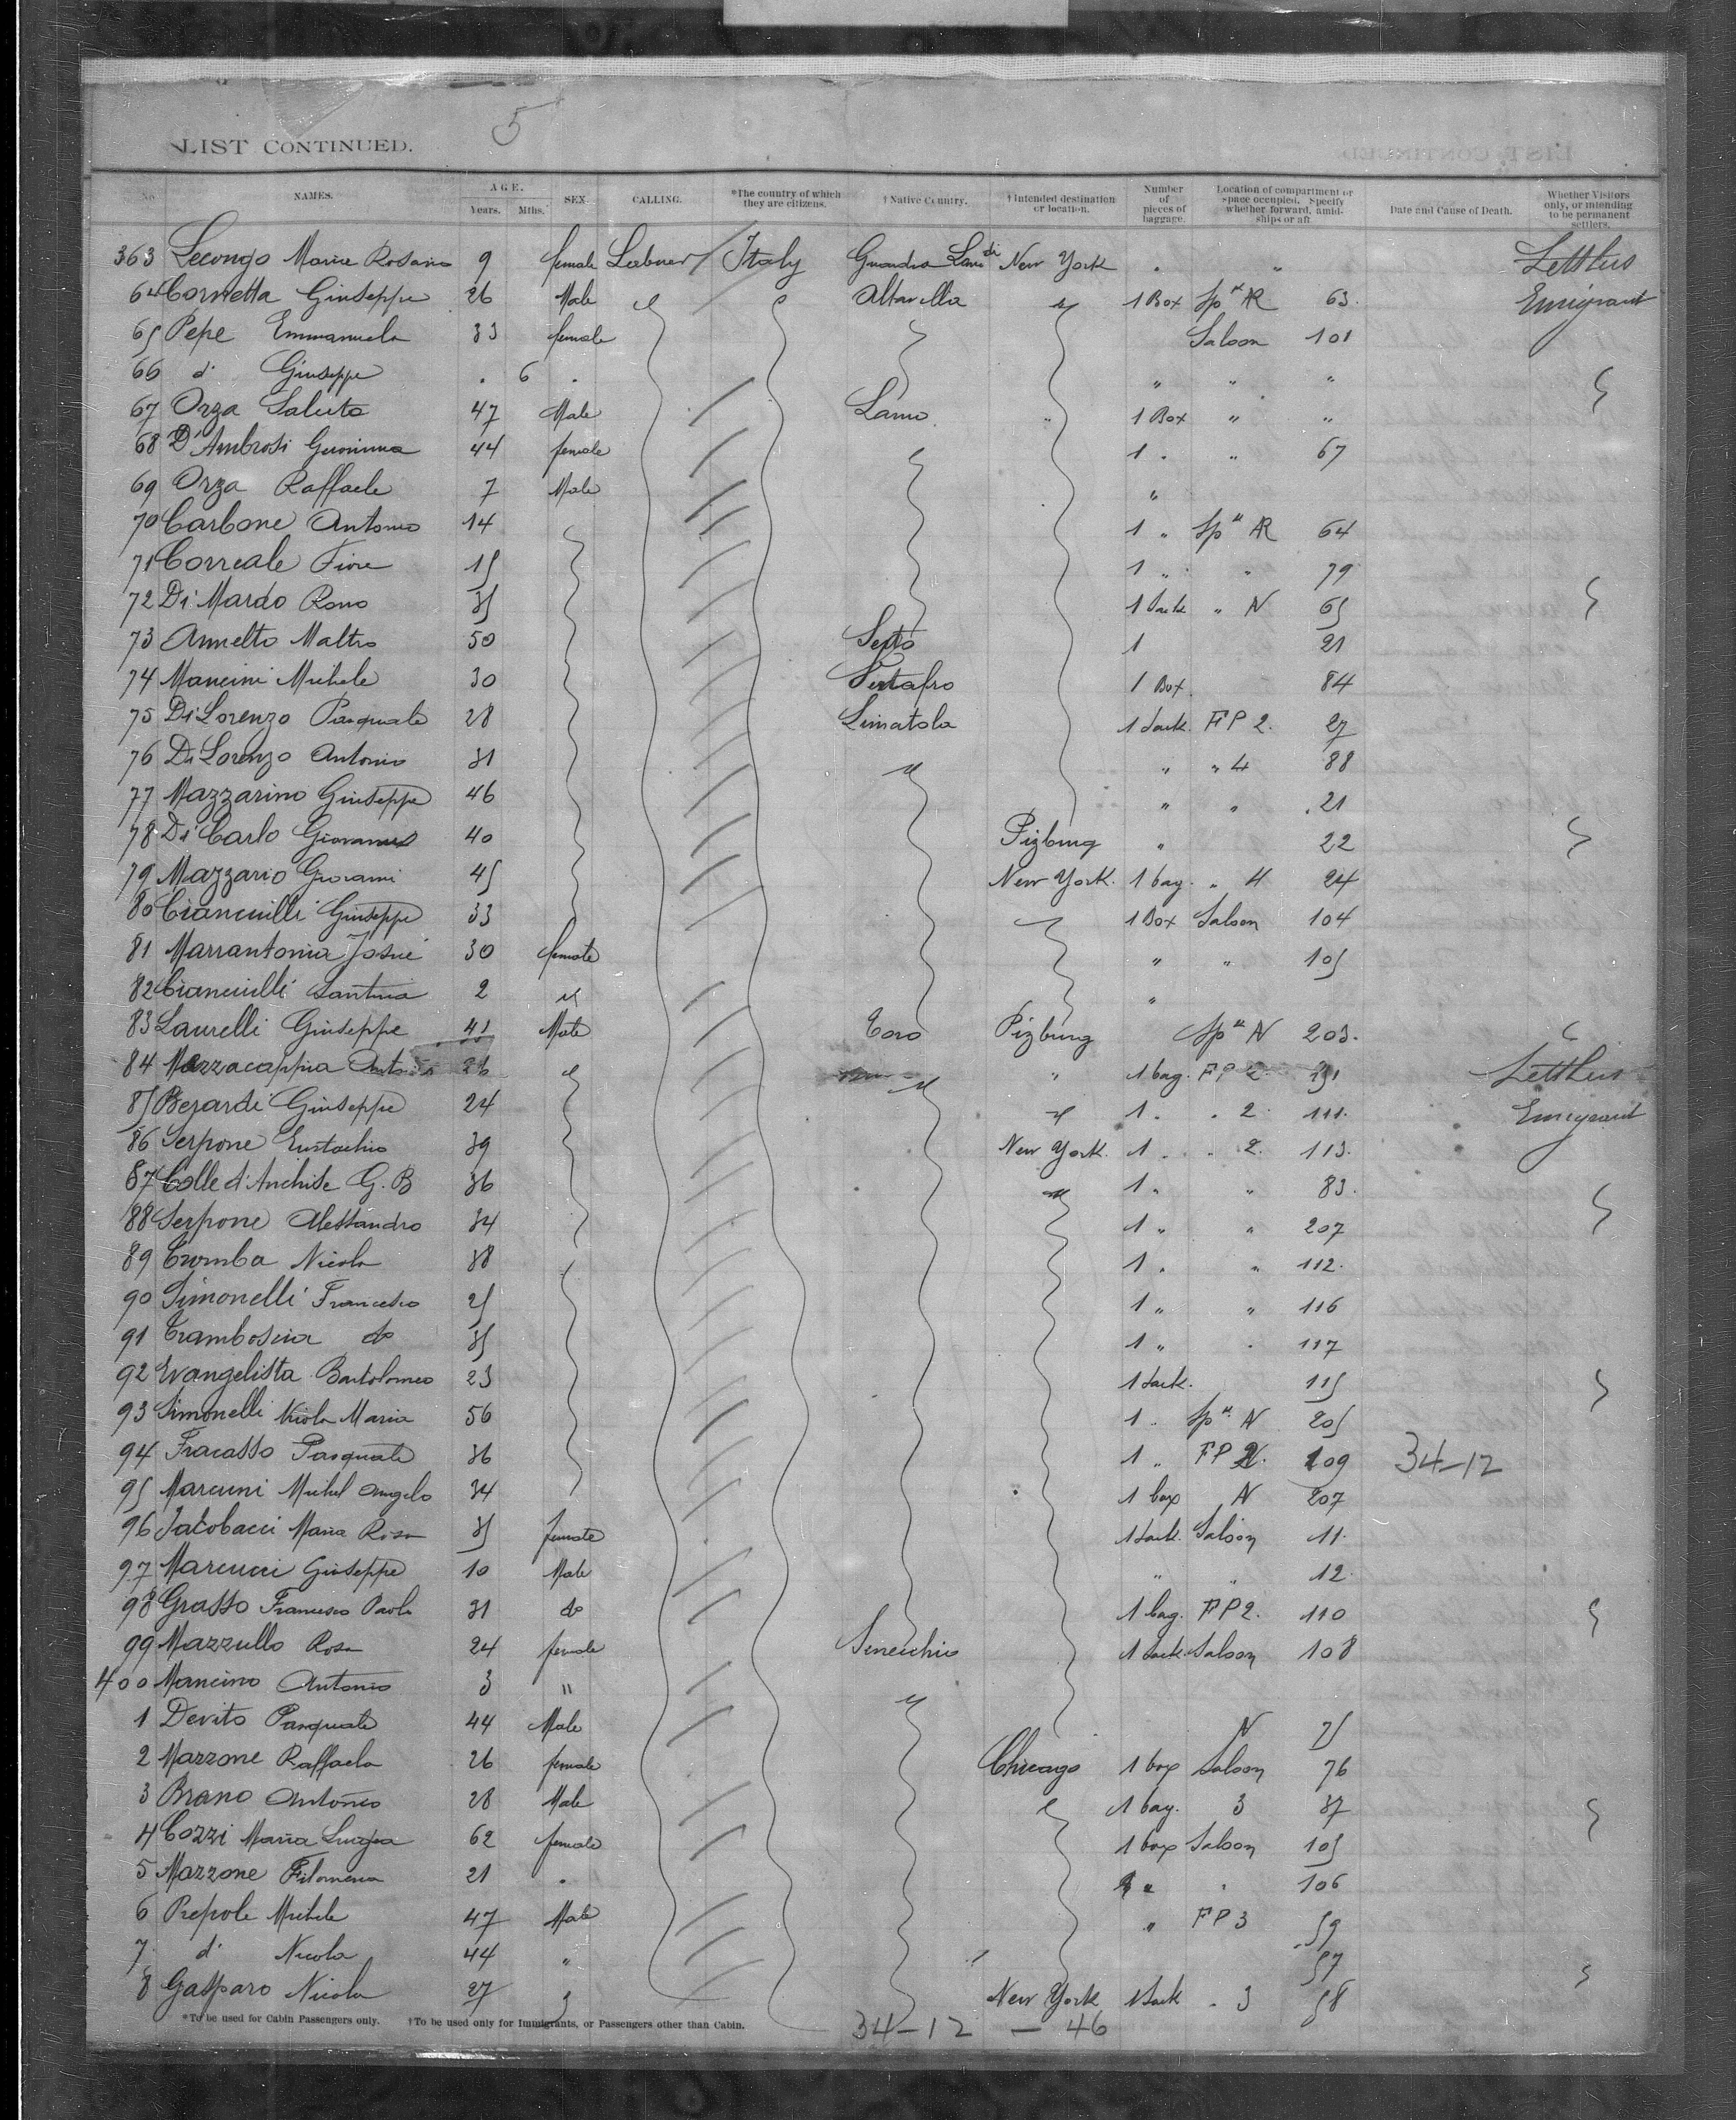 5
LIST CONTINUED.
No NAMES. AGE. Years. Mths. SEX. CALLING. *The country of which they are citizens. †Native Country. †Intended destination or location. Number of pieces of baggage. Location of compartment or space occupied. Specify whether forward, amidships or aft. Date and Cause of Death. Whether Visitors only, or intending to be permanent settlers.
363 Lecongo Maria Rosaria 9 female Labuer Italy Guardia New York " " Lettlers
64 Cornetta Giuseppe 26 Male " " Altavilla " 1 Box Sp" AR 63. Emigrant
65 Pepe Emmanuela 33 female Saloon 101
66 d' Giuseppe . 6 . " " "
67 Orza Saluto 47 Male " 1 Box " "
68 D'Ambrosi 44 female 1 . " 67
69 Orza Raffaele 7 Male "
70 Carbone Antonio 14 1 " Sp" AR 64
71 Correale Fiore 15 1 " " 79
72 Di Mardo 35 1 Sack " N 65
73 50 1 21
74 Mancini Michele 30 1 Box. 84
75 Di Lorenzo Pasquale 28 Limatola 1 Sack FP 2. 27
76 Di Lorenzo Antonio 31 " " " 4 88
77 Mazzarino Giuseppe 46 " " 21
78 Di Carlo Giovanni 40 Pizburg " 22
79 Mazzario Giovanni 45 New York. 1 bag. " 4 24
80 Cianciulli Giuseppe 33 1 Box Saloon 104
81 Marrantonia Josue 30 female " " 105
82 Cianciulli Santina 2 " "
83 Laurelli Giuseppe 41 Male Toro Pizburg Sp" N 203.
84 Mazzacappia 26 " " 1 bag. FP 2 Lettlers
85 Berardi Giuseppe 24 " " 1 . . 2. 111. Emigrant
86 Serpone Eustachio 39 New York. 1 . . 2. 113.
87 Colle d'Anchise G. B 36 " 1 " " 83.
88 Serpone Alessandro 34 1 " " 207
89 Tromba Nicola 38 1 . " 112.
90 Simonelli Francesco 25 1 " " 116
91 do 35 1 " . 117
92 Evangelista Bartolomeo 23 1 Sack. 115
93 Simonelli Nicola Maria 56 1 .. Sp" N 205
94 Fracasso Pasquale 36 1 .. FP 2. 109 34-12
95 Michel Angelo 34 1 box N 207
96 Jacobacci Maria Rosa 35 female 1 Sack. Saloon 11.
97 Marcucci Giuseppe 10 Male " " 12.
98 Grasso Francesco Paolo 31 do 1 bag. FP 2. 110
99 Mazzullo Rosa 24 female 1 Sack Saloon 108
400 Mancino Antonio 3 "
1 Devito Pasquale 44 Male " N 75
2 Mazzone Raffaela 26 female Chicago 1 box Saloon 76
3 Brano Antonio 28 Male " 1 bag. 3 37
4 Cozzi Maria Luigia 62 female 1 box Saloon 105
5 Mazzone Filomena 21 . " . 106
6 Prepole Michele 47 Male " FP 3 59
7 d' Nicola 44 " 57
8 Gasparo Nicola 27 New York 1 Sack . 3 58
*To be used for Cabin Passengers only. †To be used only for Immigrants, or Passengers other than Cabin.
34-12 - 46